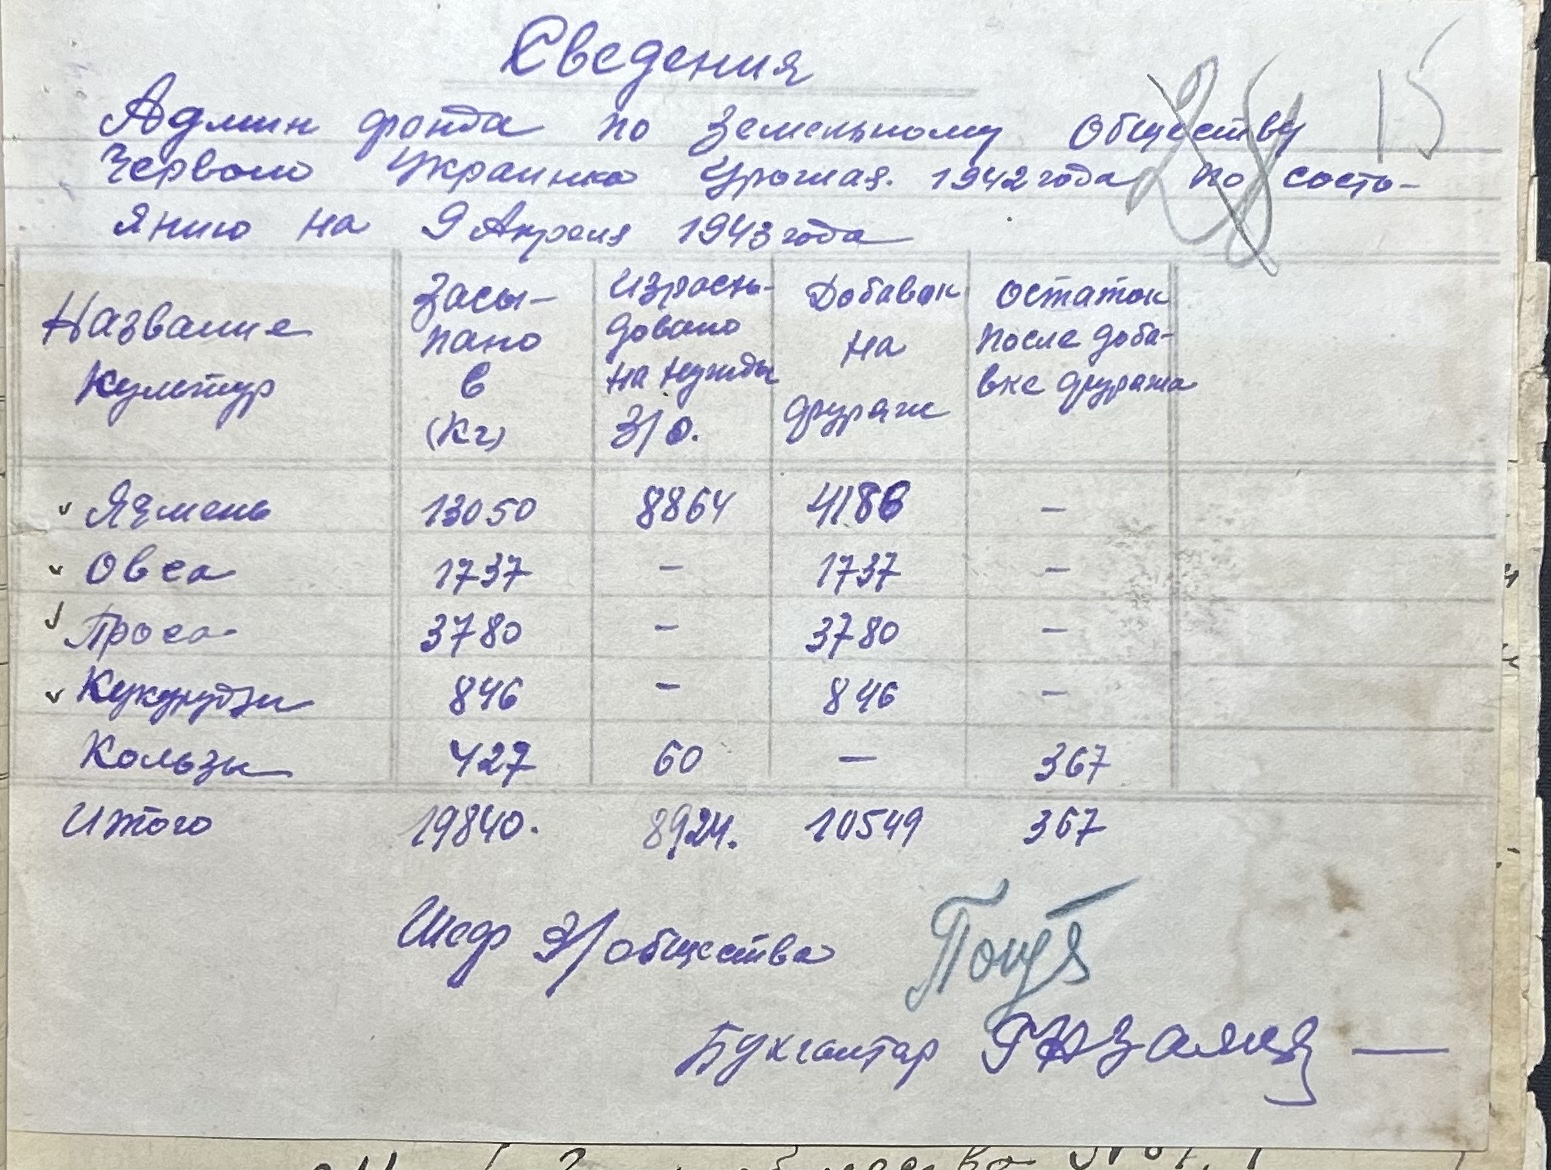 Сведения
Админ фонда по Земельному Обществу
Червоно Украинко Урожая. 1942 года по состо-
янию на 9 Апреля 1943 года
15
Название Культур
Засы-
пано
в
(Кг)
Израсхо-
довано
на нужды
З/О.
Добавок
на
фураж
Остаток
после доба-
вке фуража
Ячмень 13050 8864 4186 –
Овса 1737 – 1737 –
Проса 3780 – 3780 –
Кукурудзы 846 – 846 –
Кользы 427 60 – 367
Итого 19840. 8924. 10549 367
Шеф З/общества
Бухгалтер